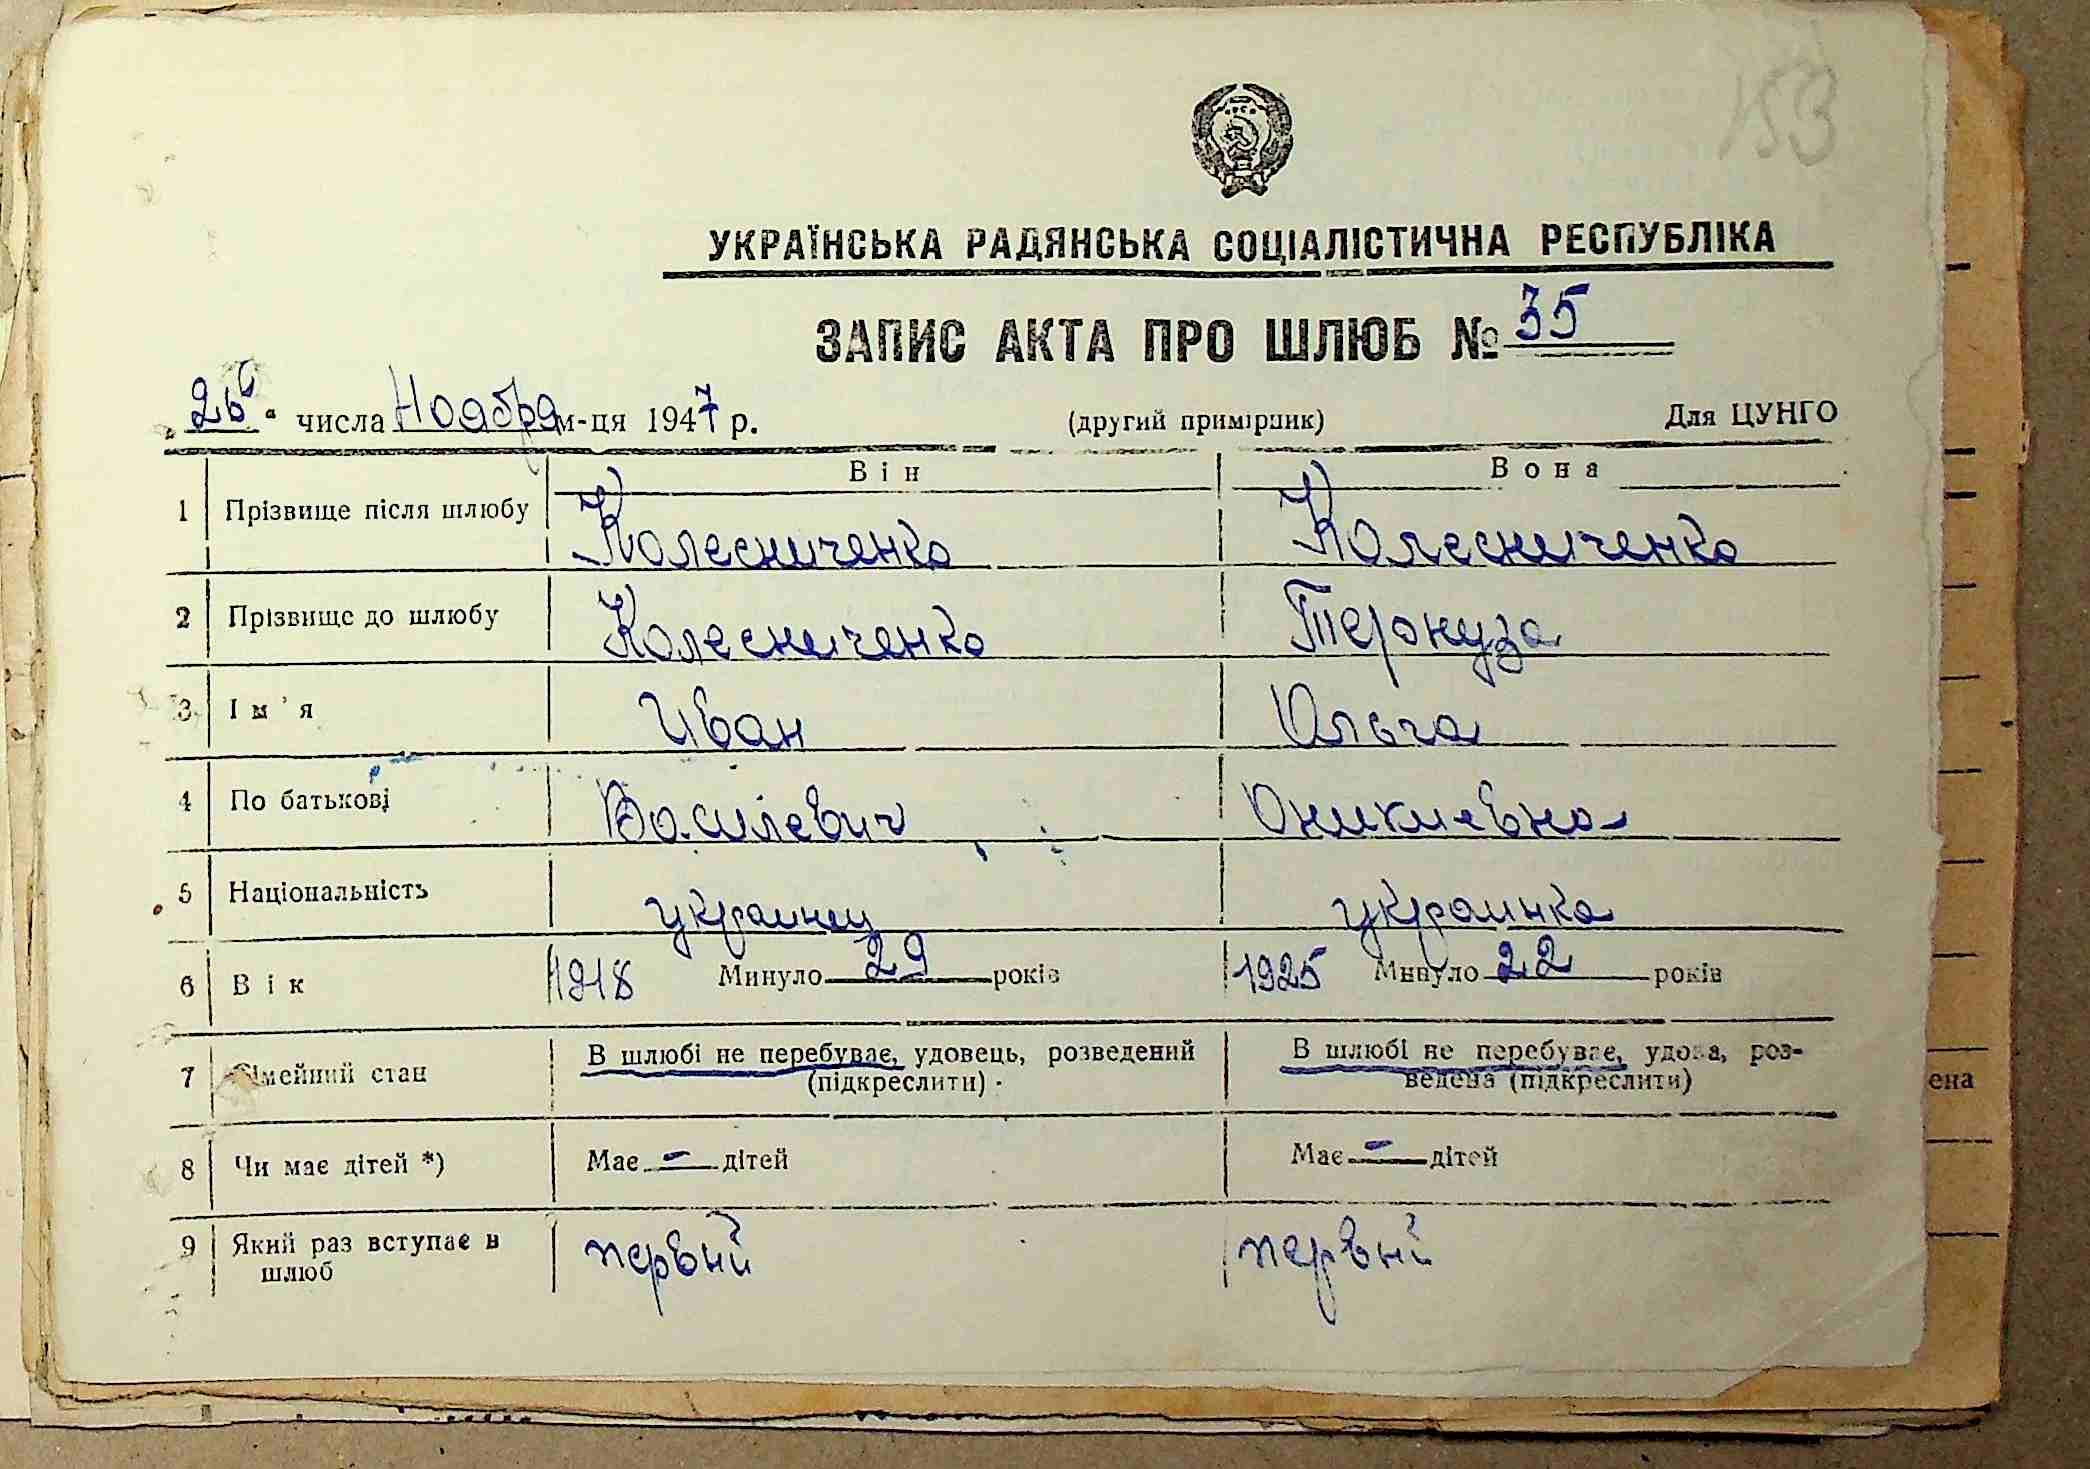 153
УКРАЇНСЬКА РАДЯНСЬКА СОЦІАЛІСТИЧНА РЕСПУБЛІКА
ЗАПИС АКТА ПРО ШЛЮБ № 35
„26“ числа Ноября м-ця 1947 р. (другий примірник) Для ЦУНГО
Він Вона
1 Прізвище після шлюбу Колесниченко Колесниченко
2 Прізвище до шлюбу Колесниченко Терокуза
3 Ім'я Иван Ольга
4 По батькові Василевич Оникиевна
5 Національність украинец украинка
6 Вік 1918 Минуло 29 років 1925 Минуло 22 років
7 Сімейний стан В шлюбі не перебуває, удовець, розведений (підкреслити) В шлюбі не перебуває, удова, роз-
ведена (підкреслити)
ена
8 Чи має дітей *) Має - дітей Має - дітей
9 Який раз вступає в первый первый
шлюб